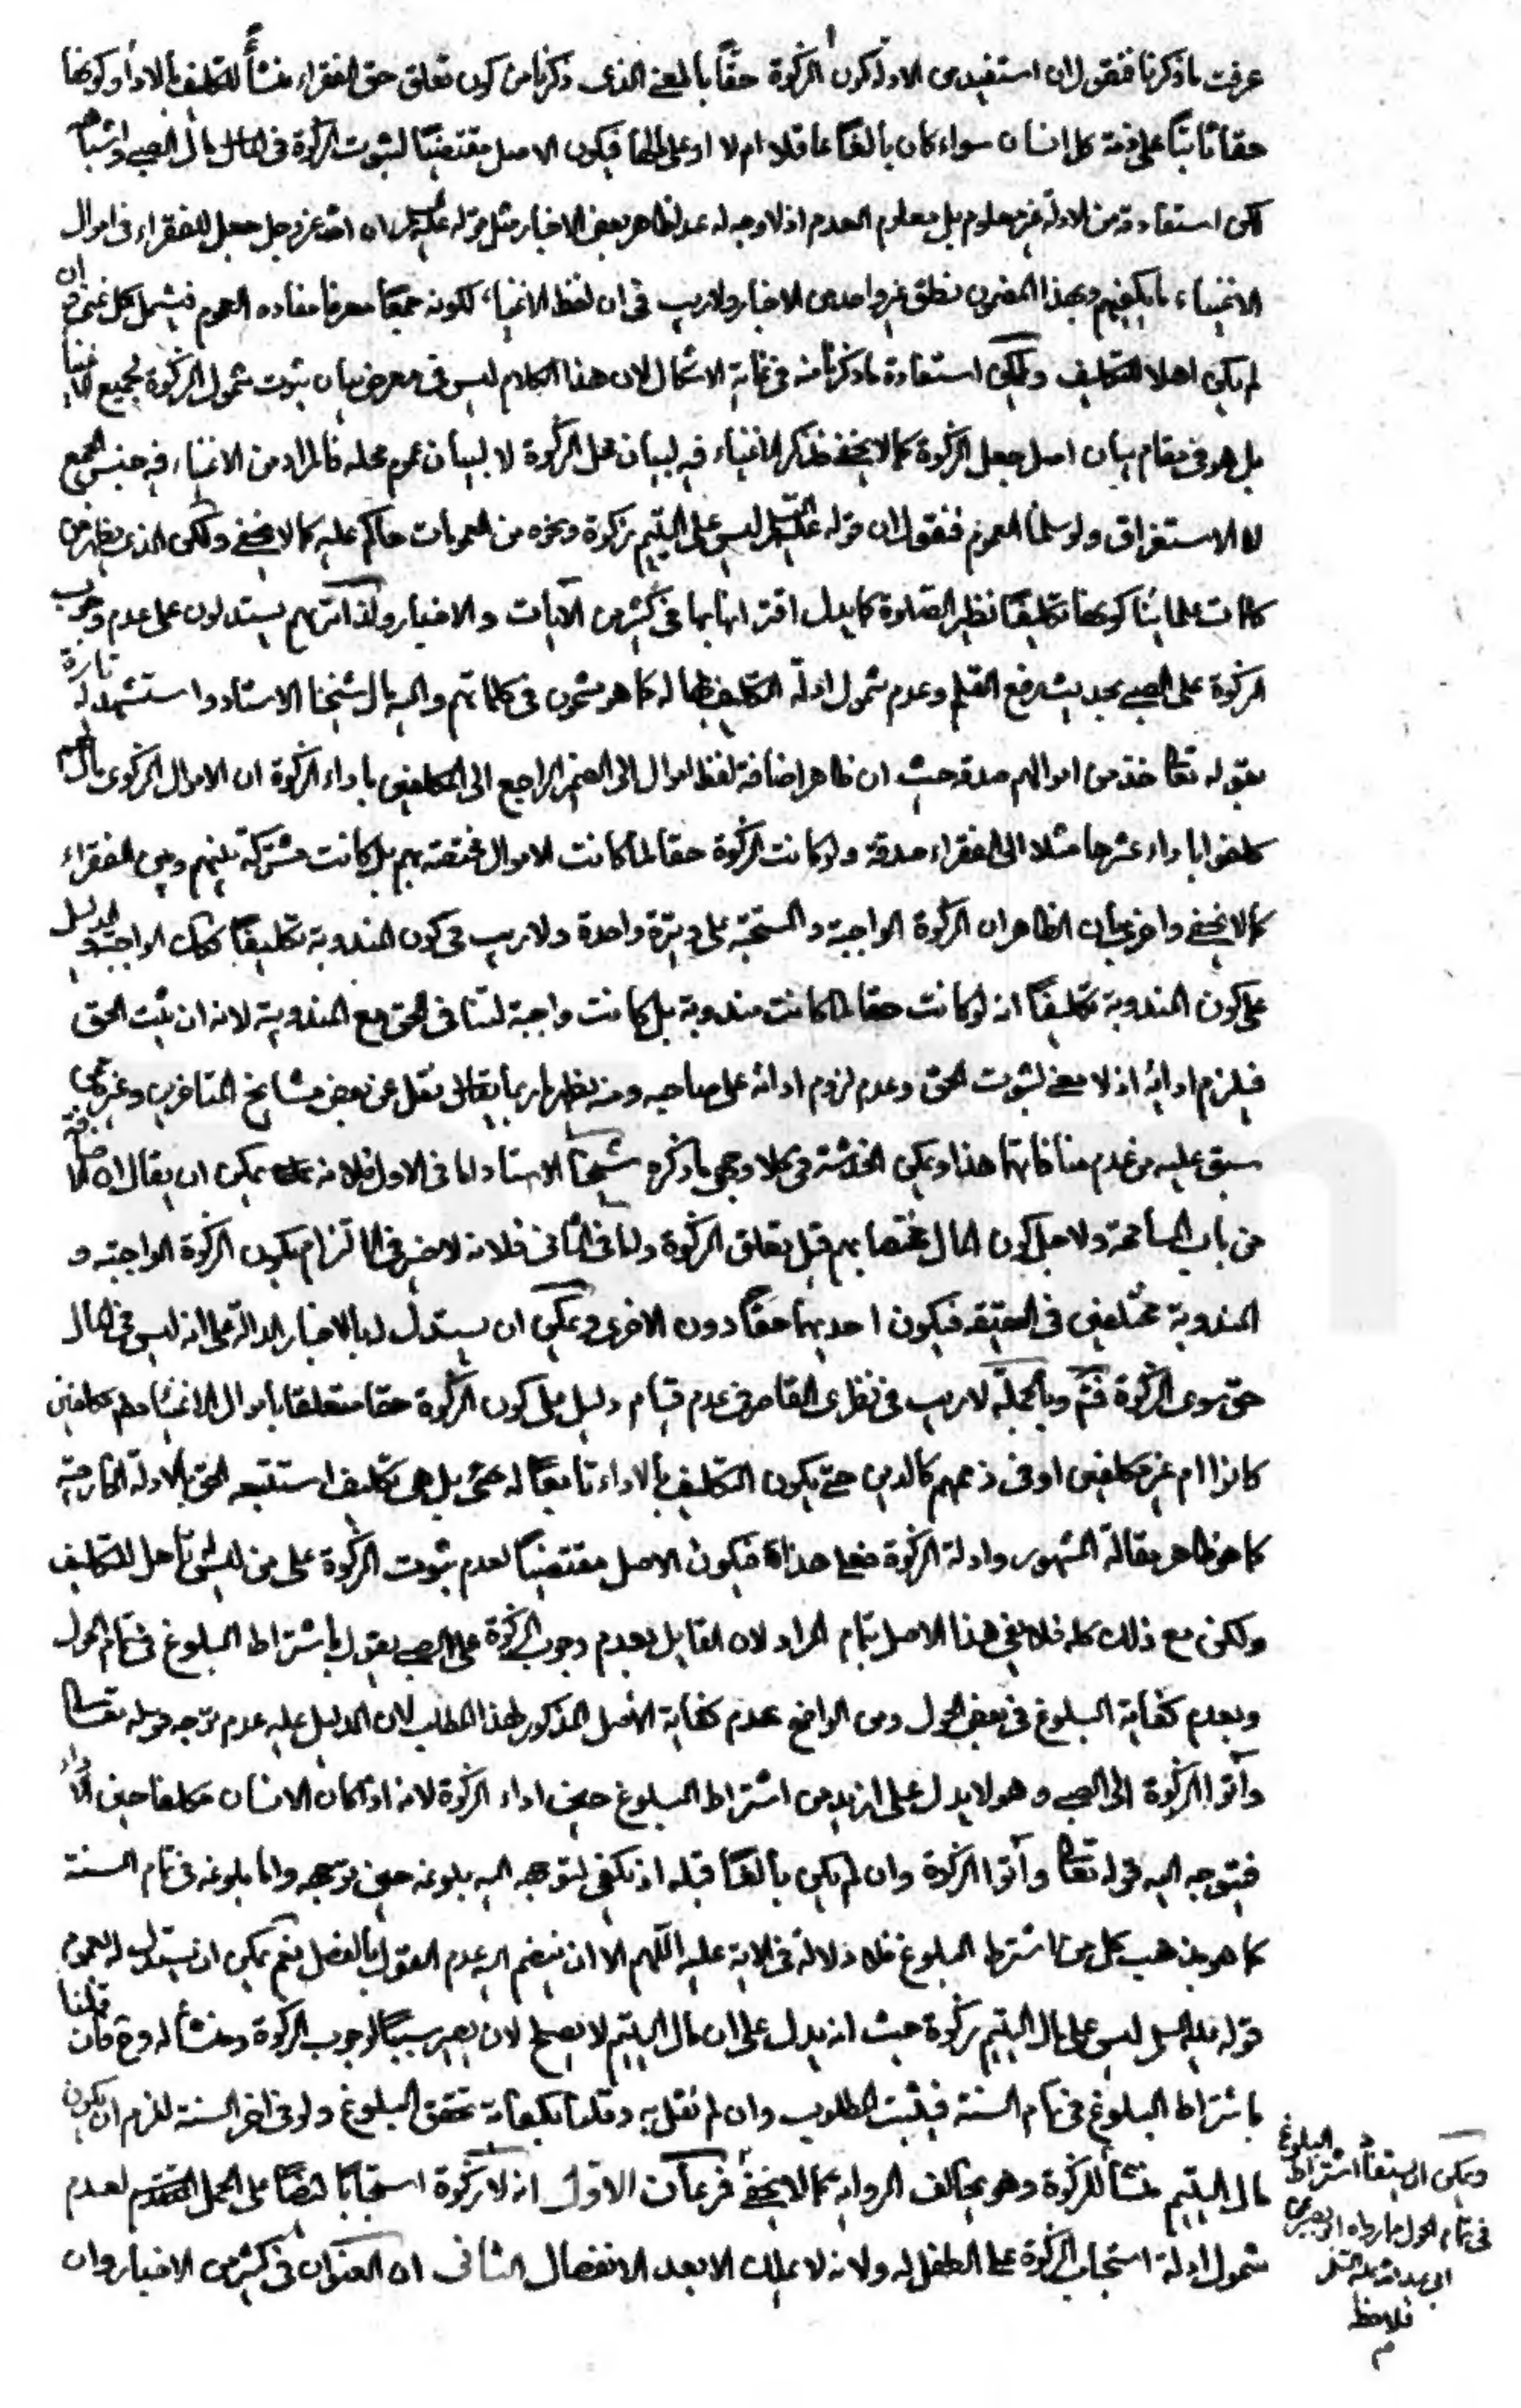 عرفت ما ذكرنا فنقول ان استفيد من الادلة كون الزكوة حقاً بالمعنى الذى ذكرنا من كون تعلق حق الفقراء منشأً للتكليف بالاداء وكونها
حقا ثابتاً على ذمة كل انسان سواء كان بالغاً عاقلا ام لا او على المال فيكون الاصل مقتضياً لثبوت الزكوة فى مال الصبى واشباهه
لكن استفادته من الادلة غير معلوم بل معلوم العدم اذ لا وجه له عدا ظاهر بعض الاخبار مثل قوله عليه السلام ان الله عز وجل جعل للفقراء فى اموال
الاغنياء ما يكفيهم وبهذا المضمون نطق غير واحد من الاخبار ولا ريب فى ان لفظ الاغنياء لكونه جمعاً معرفا مفاده العموم فيشمل كل غنى وان
لم يكن اهلا للتكليف ولكن استفادة ما ذكرنا منه فى غاية الاشكال لان هذا الكلام ليس فى معرض بيان ثبوت شمول الزكوة لجميع الاغنياء
بل هو فى مقام بيان اصل جعل الزكوة كما لا يخفى فذكر الاغنياء فيه لبيان محل الزكوة لا لبيان عموم محله فالمراد من الاغنياء فيه جنس الجمع
لا الاستغراق ولو سلمنا العموم فنقول ان قوله عليه السلام ليس على اليتيم زكوة ونحوه من العمومات حاكم عليه كما لا يخفى ولكن الذى يظهر من
كلمات علمائنا كونها تكليفاً نظير الصلوة كما يدل اقترانها بها فى كثير من الآيات والاخبار ولذا تريهم يستدلون على عدم وجوب
الزكوة على الصبى بحديث رفع القلم وعدم شمول ادلة التكليف لها له كما هو مشحون فى كلماتهم واليه مال شيخنا الاستاد واستشهد له تارة
بقوله تعالى خذ من اموالهم صدقة حيث ان ظاهر اضافة لفظ اموال الى الضمير الراجع الى المكلفين باداء الزكوة ان الاموال الزكوى مالهم
كلفوا باداء عشرها مثلا الى الفقراء صدقة ولو كانت الزكوة حقا لما كانت الاموال مختصة بهم بل كانت مشتركة بينهم وبين الفقراء
كما لا يخفى واخرى بان الظاهر ان الزكوة الواجبة والمستحبة على وتيرة واحدة ولا ريب فى كون المندوبة تكليفاً فكذلك الواجبة والدليل
على كون المندوبة تكليفاً انه لو كانت حقا لما كانت مندوبة بل كانت واجبة لتنافى الحق مع المندوبية لانه ان ثبت الحق
فيلزم ادائه اذ لا معنى لثبوت الحق وعدم لزوم ادائه على صاحبه ومنه يظهر ما ربما يقال نقل عن بعض مشايخ المتاخرين وغيره ممن
سبق عليه من عدم منافاتهما هذا ويمكن الخدشة فى كلا وجهى ما ذكره شيخنا الاستاد اما فى الاول فلانه يمكن ان يقال ان
من باب المسامحة ولاجل كون المال مختصا بهم قبل تعلق الزكوة واما فى الثانى فلانه لا ضير فى التزام بكون الزكوة الواجبة و
المندوبة مختلفين فى الحقيقة فيكون احديهما حقاً دون الاخرى ويمكن ان يستدل لها بالاخبار الدالة على انه ليس فى المال
حق سوى الزكوة فتم وبالجملة لا ريب فى نظرى القاصر فى عدم قيام دليل على كون الزكوة حقا متعلقا باموال الاغنياء مكلفين
كانوا ام غير مكلفين او فى ذممهم كالدين حتى يكون التكليف بالاداء تابعاً له بل هى تكليف استتبعه الحق بالادلة الخارجة
كما هو ظاهر مقالة المشهور وادلة الزكوة فعلى هذا فيكون الاصل مقتضياً لعدم ثبوت الزكوة على من ليس باهل للتكليف
ولكن مع ذلك كله فلا يفى هذا الاصل بتمام المراد لان القايل بعدم وجوب الزكوة على الصبى يقول باشتراط البلوغ فى تمام الحول
وبعدم كفاية البلوغ فى بعض الحول ومن الواضح عدم كفاية الاصل المذكور لهذا المطلب لان الدليل عليه عدم توجه قوله تعالى
وآتوا الزكوة الى الصبى وهو لا يدل على ازيد من اشتراط البلوغ حين اداء الزكوة لانه اذا كان الانسان مكلفا حين الاداء
فيتوجه اليه قوله تعالى وآتوا الزكوة وان لم يكن بالغاً قبله اذ يكفى لتوجهه اليه بلوغه حين توجهه واما بلوغه فى تمام السنة
كما هو مذهب كل من اشترط البلوغ فلا دلالة فى الاية عليه اللهم الا ان ينضم اليه عدم القول بالفصل نعم يمكن ان يستدل له بعموم
قوله عليه السلام ليس على مال اليتيم زكوة حيث انه يدل على ان مال اليتيم لا يصلح لان يصير سبباً لوجوب الزكوة ومنشأ له وح فان قلنا
باشتراط البلوغ فى تمام السنة فيثبت المطلوب وان لم نقل به وقلنا بكفاية تحقق البلوغ ولو فى اخر السنة للزم ان يكون
مال اليتيم منشأ للزكوة وهو يخالف الرواية كما لا يخفى فرعان الاول انه لا زكوة استحباباً ايضاً على الحمل لعدم
شمول ادلة استحباب الزكوة على الطفل له ولانه لا يملك الا بعد الانفصال الثانى ان العنوان فى كثير من الاخبار وان
ويمكن ان يستفاد اشتراط البلوغ
فى تمام الحول مما رواه ابو بصير عن
ابى عبد الله عليه السلام
فلاحظ
م